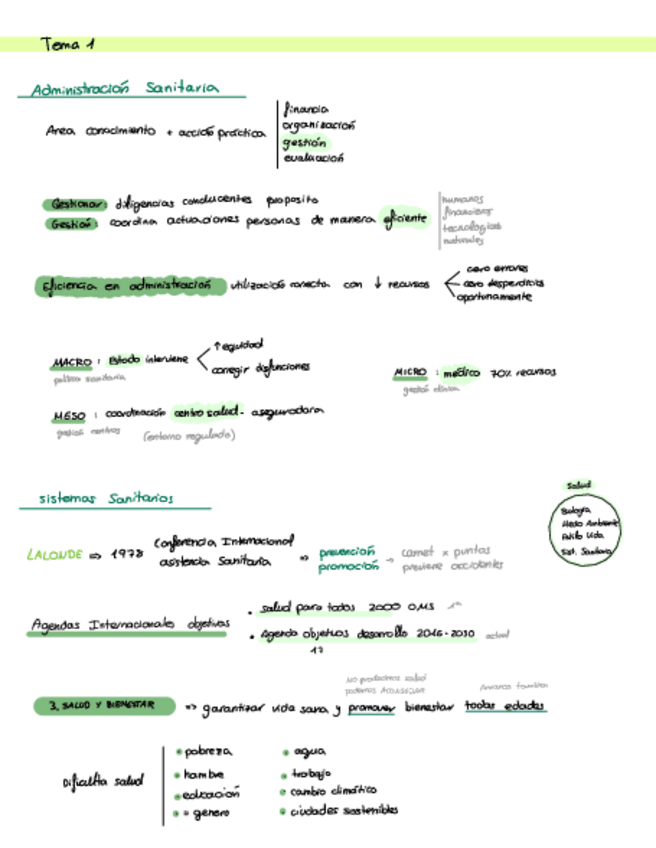 Tema 1
Administración Sanitaria
Area conocimiento + acción práctica
financia
organización
gestión
evaluación
Gestionar: diligencias conducentes proposito
Gestión: coordina actuaciones personas de manera eficiente
humanos
financieros
tecnologías
naturales
Eficiencia en administración utilización correcta con ↓ recursos
cero errores
cero desperdicios
oportunamente
MACRO: Estado interviene
política sanitaria
↑ equidad
corregir disfunciones
MICRO: médico 70% recursos
gestión clínica
MESO: coordinación centro salud - aseguradora
gestión centros (entorno regulado)
sistemas Sanitarios
Salud
Biología
Medio Ambiente
Estilo Vida
Sist. Sanitario
LALONDE => 1978 Conferencia Internacional
asistencia Sanitaria
=> prevención
promoción
→ carnet x puntos
previene accidentes
Agendas Internacionales objetivos
• salud para todos 2000 OMS
• Agenda objetivos desarrollo 2016-2030 actual
17
No producimos salud
podemos
3. SALUD Y BIENESTAR => garantizar vida sana y promover bienestar todas edades
Dificulta salud
• pobreza
• hambre
• educación
• = genero
• agua
• trabajo
• cambio climático
• ciudades sostenibles